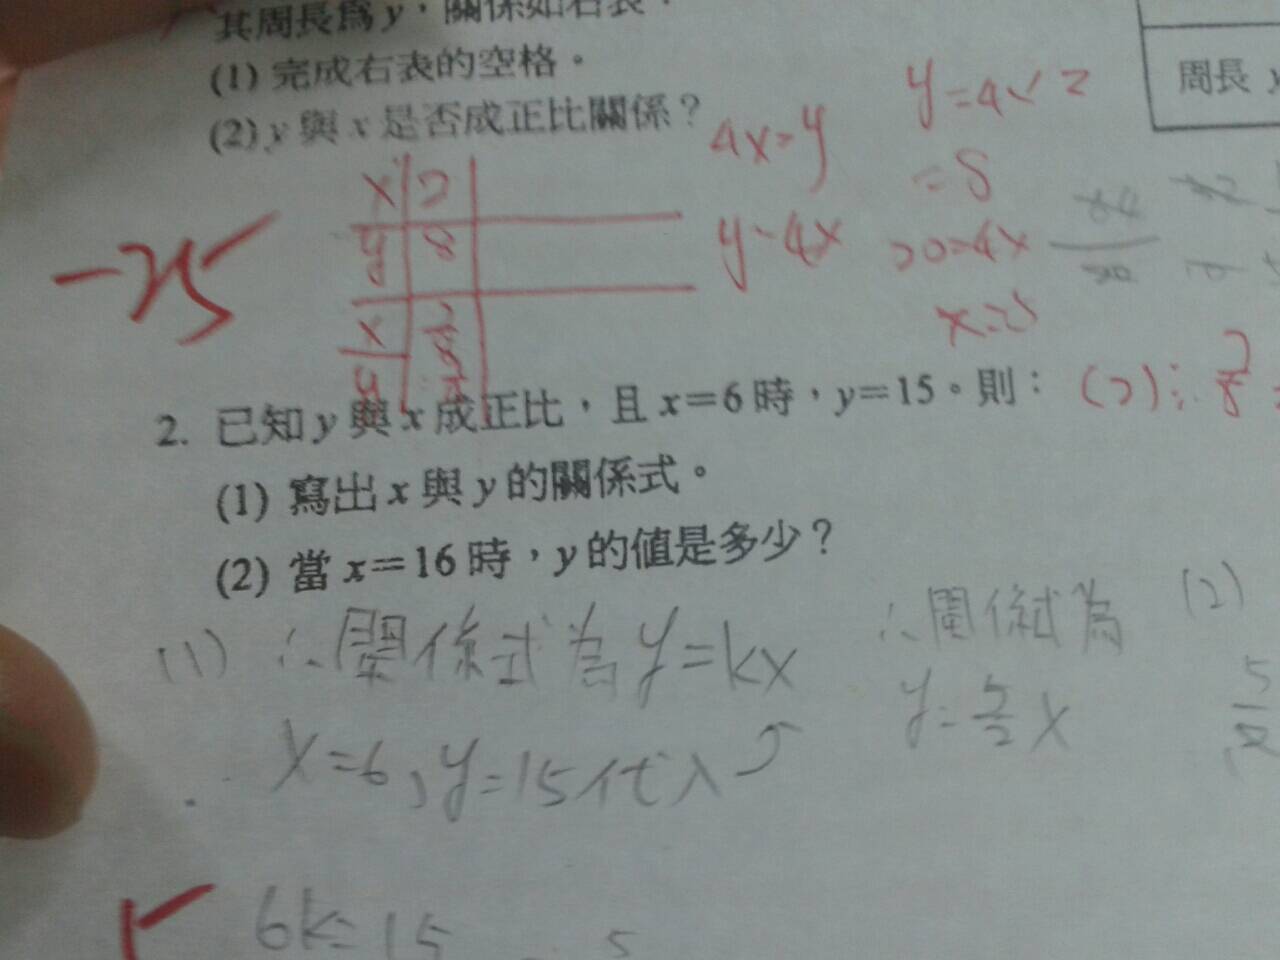 其周長為 y，關係如右表．
(1) 完成右表的空格。
(2) y 與 x 是否成正比關係？
周長 y
4x=y
y=4×2
=8
y=4x
20=4x
x=5
x 2
y 8
x
y
-25
2. 已知 y 與 x 成正比，且 x=6 時，y=15。則：
(1) 寫出 x 與 y 的關係式。
(2) 當 x=16 時，y 的值是多少？
(2)∵ 2/8
(1) ∴關係式為 y=kx
x=6，y=15代入
6k=15
5
∴關係式為
y=5/2 x
(2)